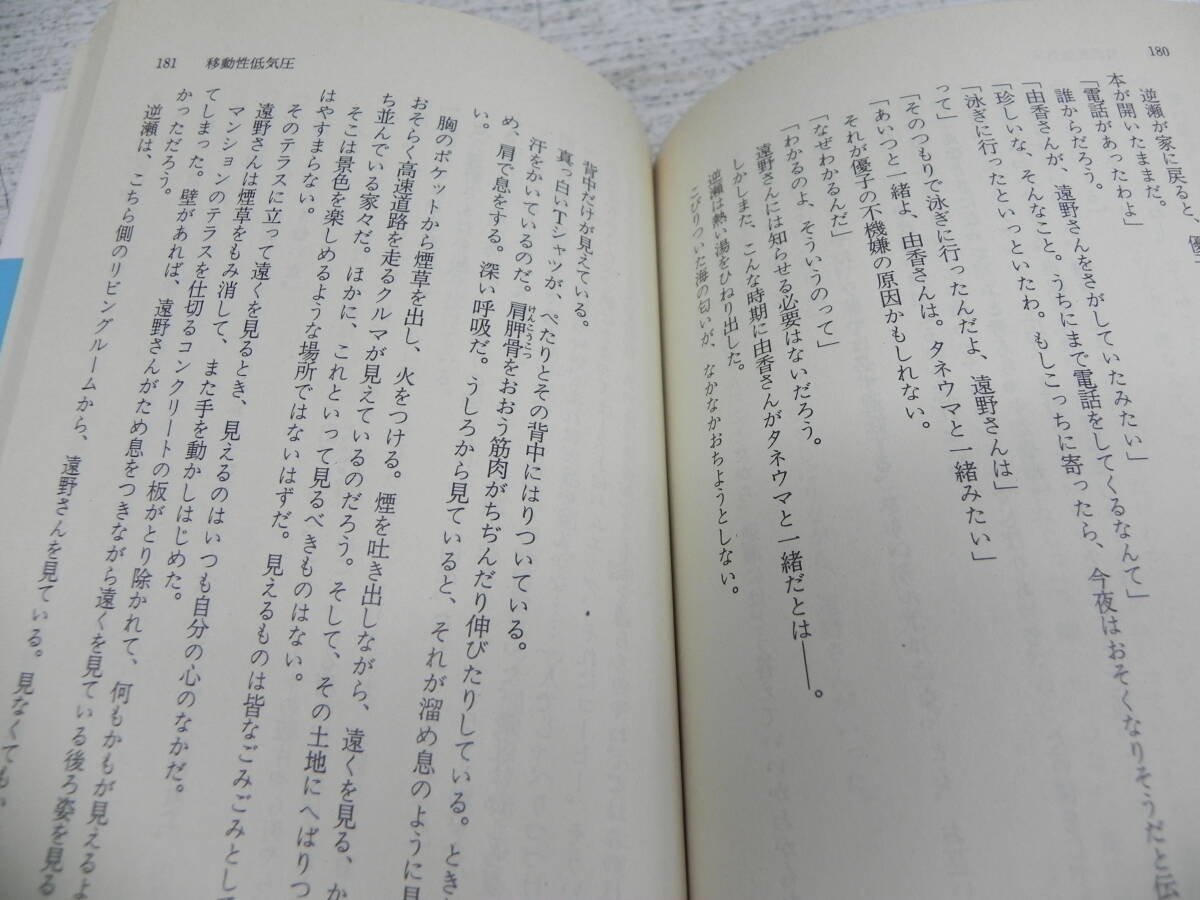 180
逆瀬が家に戻ると、優
本が開いたままだ。
「電話があったわよ」
誰からだろう。
「由香さんが、遠野さんをさがしていたみたい」
「珍しいな、そんなこと。うちにまで電話をしてくるなんて」
「泳ぎに行ったといっといたわ。もしこっちに寄ったら、今夜はおそくなりそうだと伝
って」
「そのつもりで泳ぎに行ったんだよ、遠野さんは」
「あいつと一緒よ、由香さんは。タネウマと一緒みたい」
それが優子の不機嫌の原因かもしれない。
「なぜわかるんだ」
「わかるのよ、そういうのって」
遠野さんには知らせる必要はないだろう。
しかしまた、こんな時期に由香さんがタネウマと一緒だとは――。
逆瀬は熱い湯をひねり出した。
こびりついた海の匂いが、なかなかおちようとしない。
181 移動性低気圧
背中だけが見えている。
真っ白いTシャツが、ぺたりとその背中にはりついている。
汗をかいているのだ。肩胛骨をおおう筋肉がちぢんだり伸びたりしている。とき
け んこうこつ
め、肩で息をする。深い呼吸だ。うしろから見ていると、それが溜め息のように見
い。
胸のポケットから煙草を出し、火をつける。煙を吐き出しながら、遠くを見る、か
おそらく高速道路を走るクルマが見えているのだろう。そして、その土地にへばりつ
ち並んでいる家々だ。ほかに、これといって見るべきものはない。
そこは景色を楽しめるような場所ではないはずだ。見えるものは皆なごみごみとして
はやすまらない。
そのテラスに立って遠くを見るとき、見えるのはいつも自分の心のなかだ。
遠野さんは煙草をもみ消して、また手を動かしはじめた。
マンションのテラスを仕切るコンクリートの板がとり除かれて、何もかもが見えるよ
てしまった。壁があれば、遠野さんがため息をつきながら遠くを見ている後ろ姿を見る
かっただろう。
逆瀬は、こちら側のリビングルームから、遠野さんを見ている。見なくても、